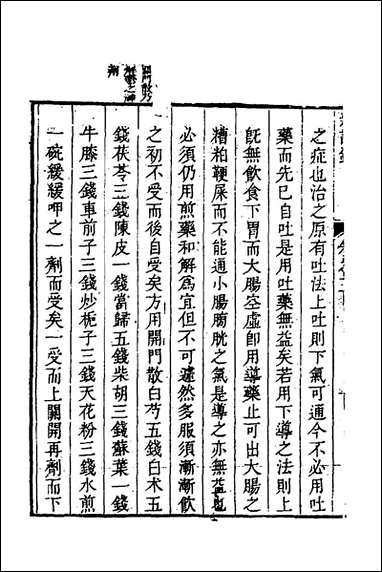 之症也治之原有吐法上吐則下氣可通今不必用吐
藥而先已自吐是用吐藥無益矣若用下導之法則上
既無飲食下胃而大腸空虛即用導藥止可出大腸之
糟粕鞕屎而不能通小腸膀胱之氣是導之亦無益也
必須仍用煎藥和解爲宜但不可遽然多服須漸漸飲
之初不受而後自受矣方用開門散白芍五錢白术五
錢茯苓三錢陳皮一錢當歸五錢柴胡三錢蘇葉一錢
牛膝三錢車前子三錢炒梔子三錢天花粉三錢水煎
一碗緩緩呷之一劑而受矣一受而上關開再劑而下